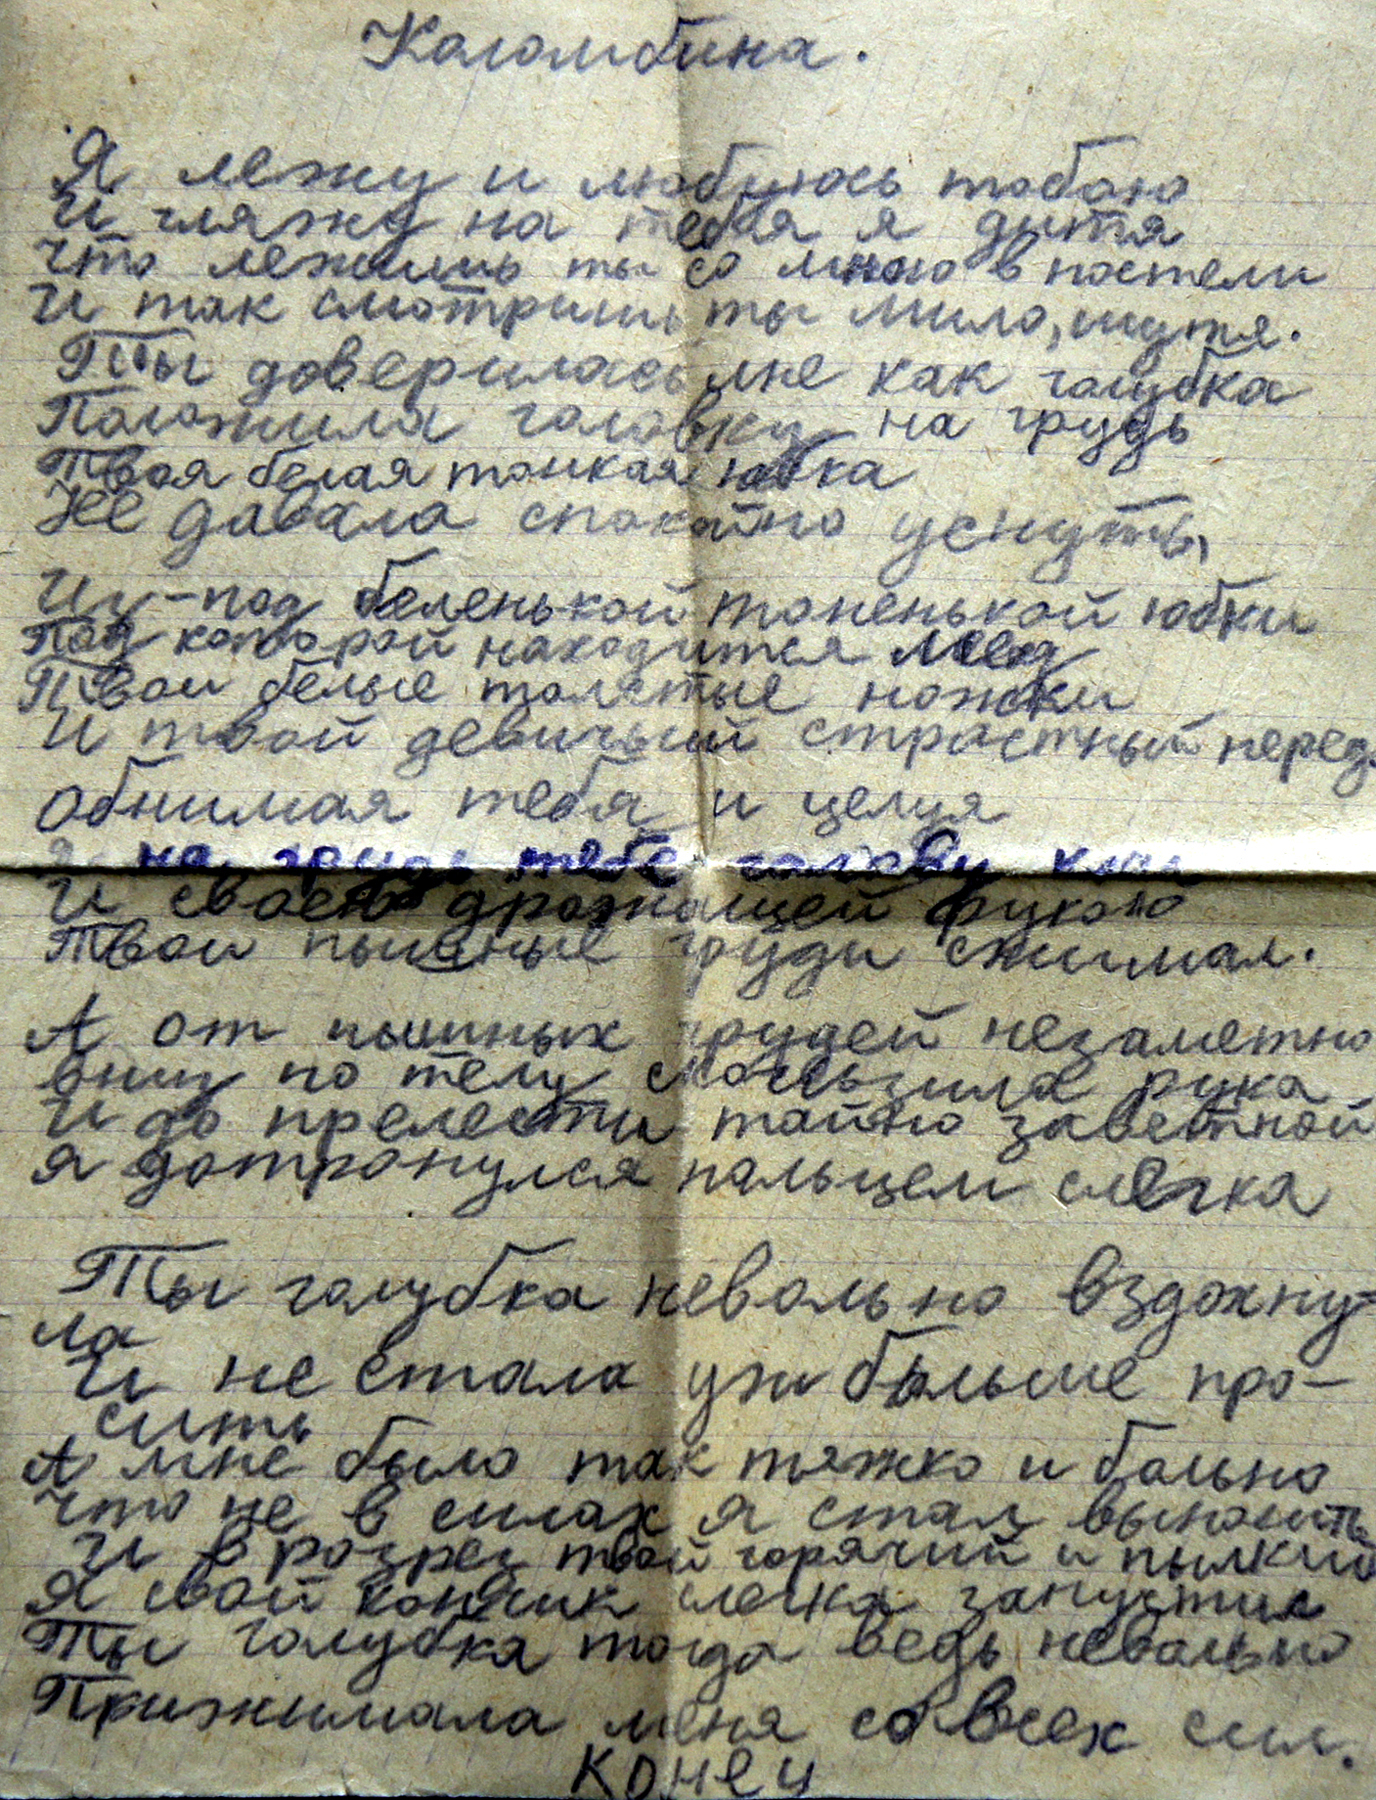 Коломбина.
Я лежу и любуюсь тобою
И гляжу на тебя я дитя
Что лежишь ты со мною в постели
И так смотришь ты мило, шутя.
Ты доверилась мне как голубка
Положила головку на грудь
Твоя белая тонкая юбка
Не давала спокойно уснуть,
Из-под беленькой тоненькой юбки
Под которой находится мед
Твои белые толстые ножки
И твой девичьий страстный перед.
Обнимая тебя и целуя
на грудь тебе голову
И своею дрожащей рукою
Твои пышные груди сжимал.
А от пышных грудей незаметно
вниз по телу скользила рука
И до прелести тайно заветной
Я дотронулся пальцем слегка
Ты голубка невольно вздохну=
ла
И не стала уж больше про-
сить
А мне было так тяжко и больно
Что не в силах я стал выносить
И в разрез твой горячий и пылкий
Я свой кончик слегка запустил
Ты голубка тогда ведь невольно
Прижимала меня со всех сил.
Конец